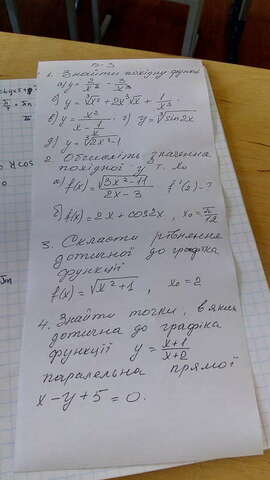 п-3
1. Знайти похідну функції
а) y = 2/x² - 3/x³
б) y = ∛x² + 2x³√x + 1/x³
в) y = x²/(x - 1/x) г) y = √sin2x
д) y = √2x²-1
2. Обчисліть значення
похідної у т. x₀
а) f(x) = √(3x²-11)/(2x-3) f'(2)-?
б) f(x) = 2x + cos2x, x₀ = π/12
3. Скласти рівняння
дотичної до графіка
функції
f(x) = √x²+1, x₀ = 2
4. Знайти точки, в яких
дотична до графіка
функції y = (x+1)/(x+2)
паралельна прямої
x - y + 5 = 0.